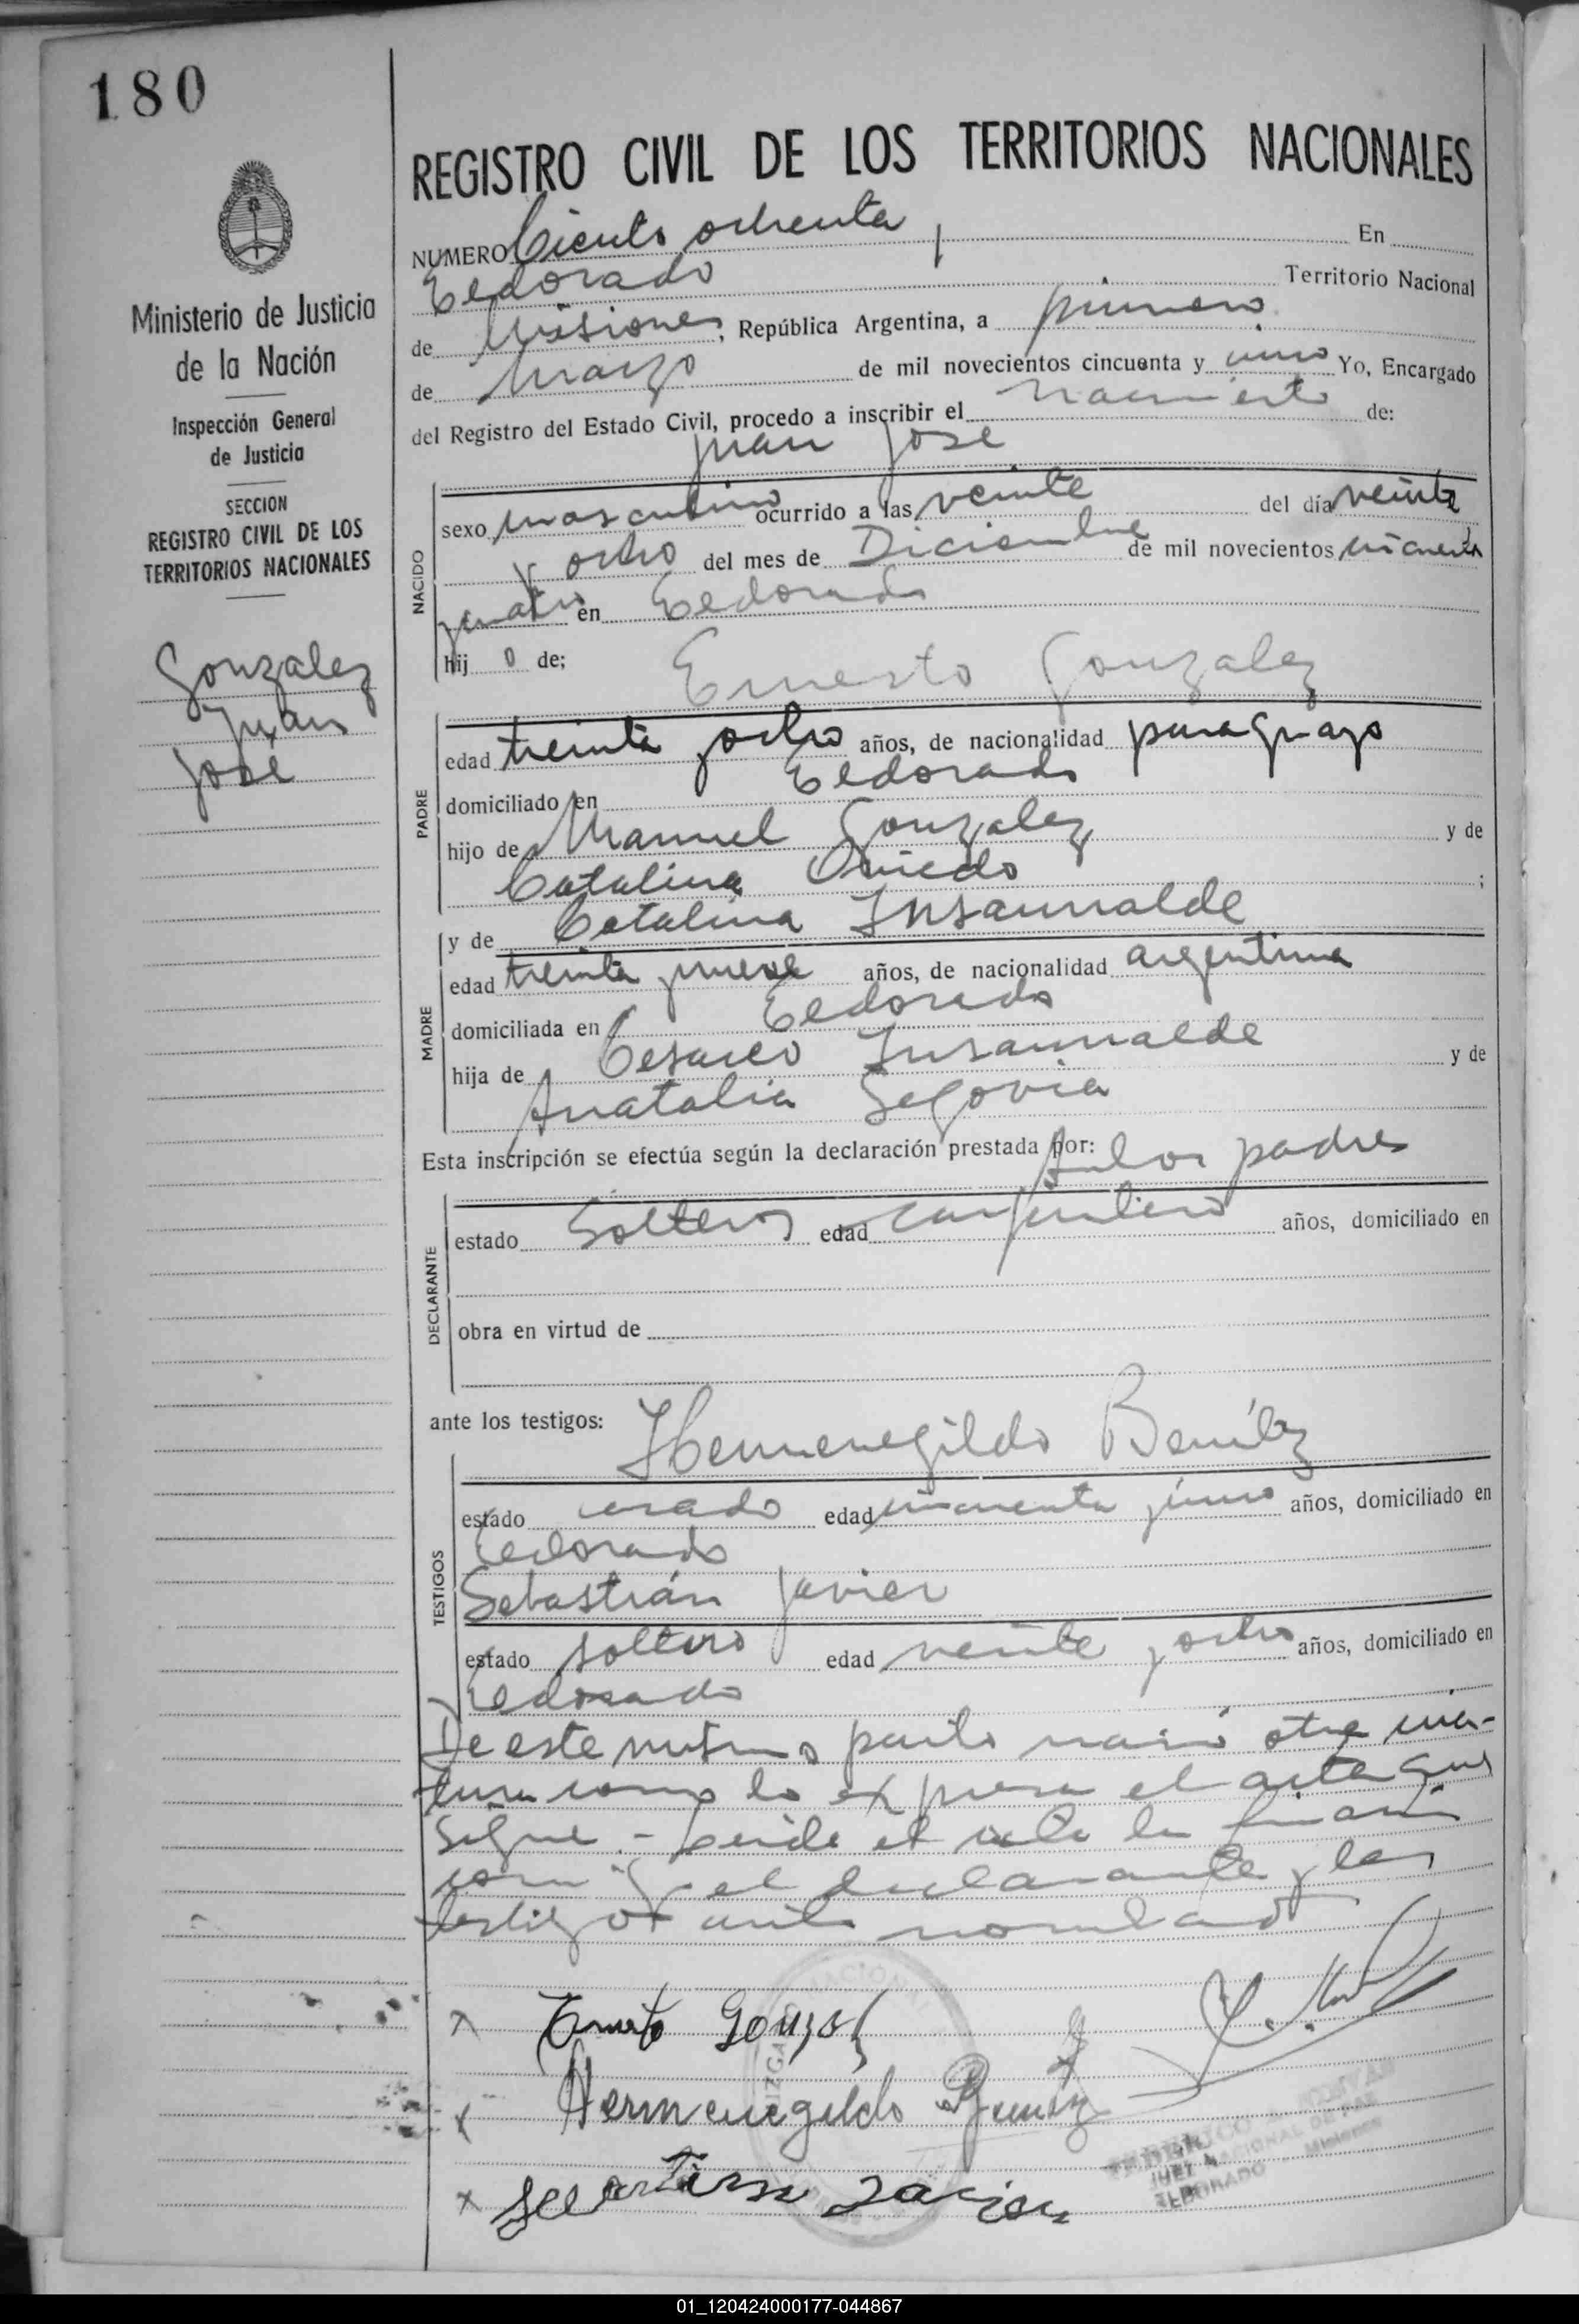 180
REGISTRO CIVIL DE LOS TERRITORIOS NACIONALES
Ministerio de Justicia
de la Nación
Inspección General
de Justicia
SECCION
REGISTRO CIVIL DE LOS
TERRITORIOS NACIONALES
Gonzalez
Juan
José
NUMERO Ciento ochenta En
Eldorado Territorio Nacional
de Misiones, República Argentina, a primero
de Marzo de mil novecientos cincuenta y uno Yo, Encargado
del Registro del Estado Civil, procedo a inscribir el nacimiento de:
Juan José
NACIDO
sexo masculino ocurrido a las veinte del día veinte
y ocho del mes de Diciembre de mil novecientos cincuenta
en Eldorado
hij o de; Ernesto Gonzalez
PADRE
edad treinta y ocho años, de nacionalidad paraguayo
domiciliado en Eldorado
hijo de Manuel Gonzalez y de
Catalina Oviedo ;
y de Catalina Insaurralde
MADRE
edad treinta y nueve años, de nacionalidad argentina
domiciliada en Eldorado
hija de Cesareo Insaurralde y de
Anatalia Segovia
Esta inscripción se efectúa según la declaración prestada por: Ambos padres
DECLARANTE
estado Solteros edad carpintero años, domiciliado en
obra en virtud de
ante los testigos: Hermenegildo Benítez
TESTIGOS
estado casado edad cincuenta y uno años, domiciliado en
Eldorado
Sebastián Javier
estado soltero edad veinte y ocho años, domiciliado en
Eldorado
De este mismo parto nació otra cria-
tura como lo expresa el acta que
sigue - Leida el acta la firman
el declarante y los
testigos ante nombrados
x Ernesto Gonzalez
x Hermenegildo Benitez
x Sebastian Javier
ELDORADO Misiones
01_120424000177-044867